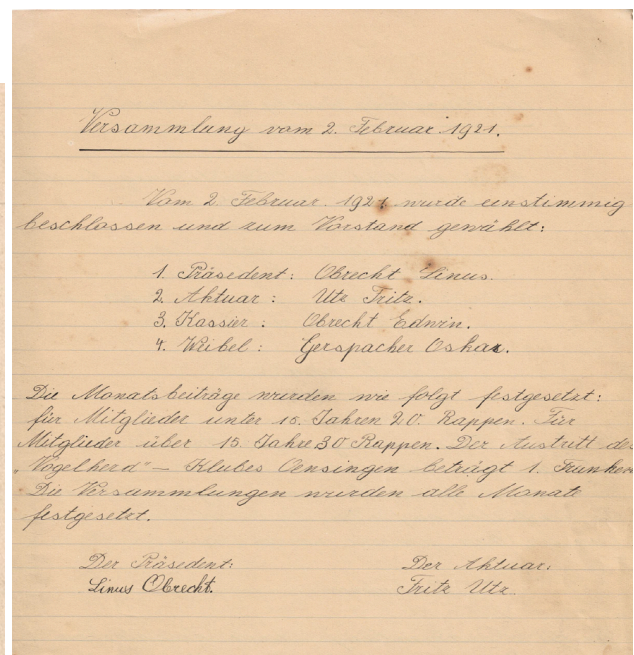 Versammlung vom 2. Februar 1921.
Vom 2. Februar 1921 wurde einstimmig
beschlossen und zum Vorstand gewählt:
1. Präsedent: Obrecht Linus.
2. Aktuar: Utz Fritz.
3. Kassier: Obrecht Edwin.
4. Weibel: Gerspacher Oskar.
Die Monatsbeiträge wurden wie folgt festgesetzt:
für Mitglieder unter 15. Jahren 20. Rappen. Für
Mitglieder über 15. Jahre 30 Rappen. Der Austritt des
„Vogelherd" – Klubes Oensingen beträgt 1. Franken
Die Versammlungen wurden alle Monate
festgesetzt.
Der Präsedent: Der Aktuar:
Linus Obrecht. Fritz Utz.